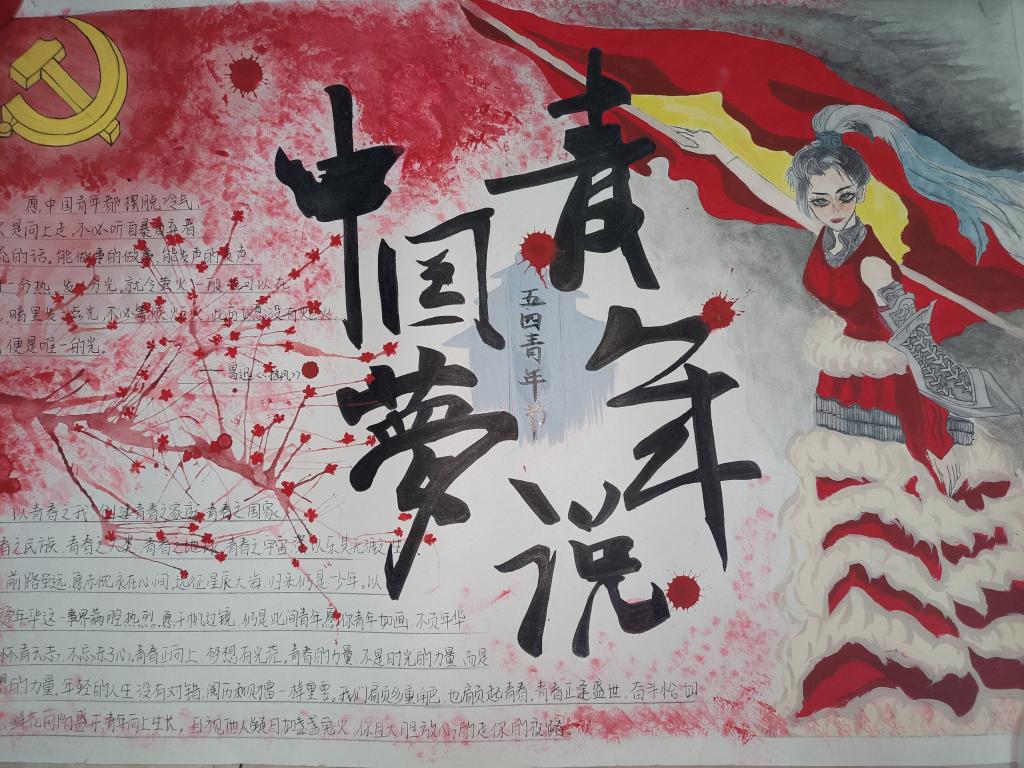 中国梦
青年说
五四青年节
愿中国青年都摆脱冷气,
只是向上走,不必听自暴自弃者
流的话。能做事的做事,能发声的发声。
有一分热,发一分光,就令萤火一般,也可以在
黑暗里发一点光,不必等候炬火,此后如竟没有炬火,
我便是唯一的光。
——鲁迅《热风》
以青春之我,创建青春之家庭,青春之国家
青春之民族,青春之人类,青春之地球,青春之宇宙,
前路至远,愿赤忱永在心间,远征星辰大海,归来仍是少年。以
年华这一事界 热烈,愿千帆过镜,仍是此间青年愿你青年如画,不负年华
怀青云志,不忘 心,青春正向上,梦想有光芒。青春的力量,不是时光的力量,而是
的力量,年轻的人生没有对错,阅历和财富一样重要。我们肩负多重角色,也肩负起青春,青春正逢盛世,奋斗恰如
鲜花向阳盛开青年向上生长。且视他人疑目如盏盏鬼火,你且大胆放心,的走你的夜路。